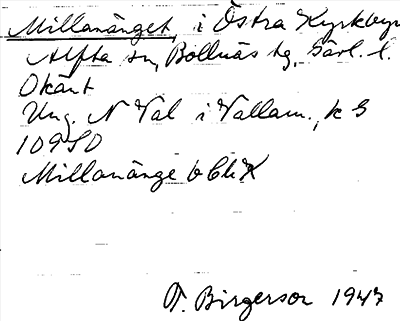 Millanänget, i Östra Kyrkbyn
Alfta sn, Bollnäs tg, Gävl. l.
Okänt
Ung. N Val i Vallam., k S
109 SO
Millanänge
T. Birgerson 1947